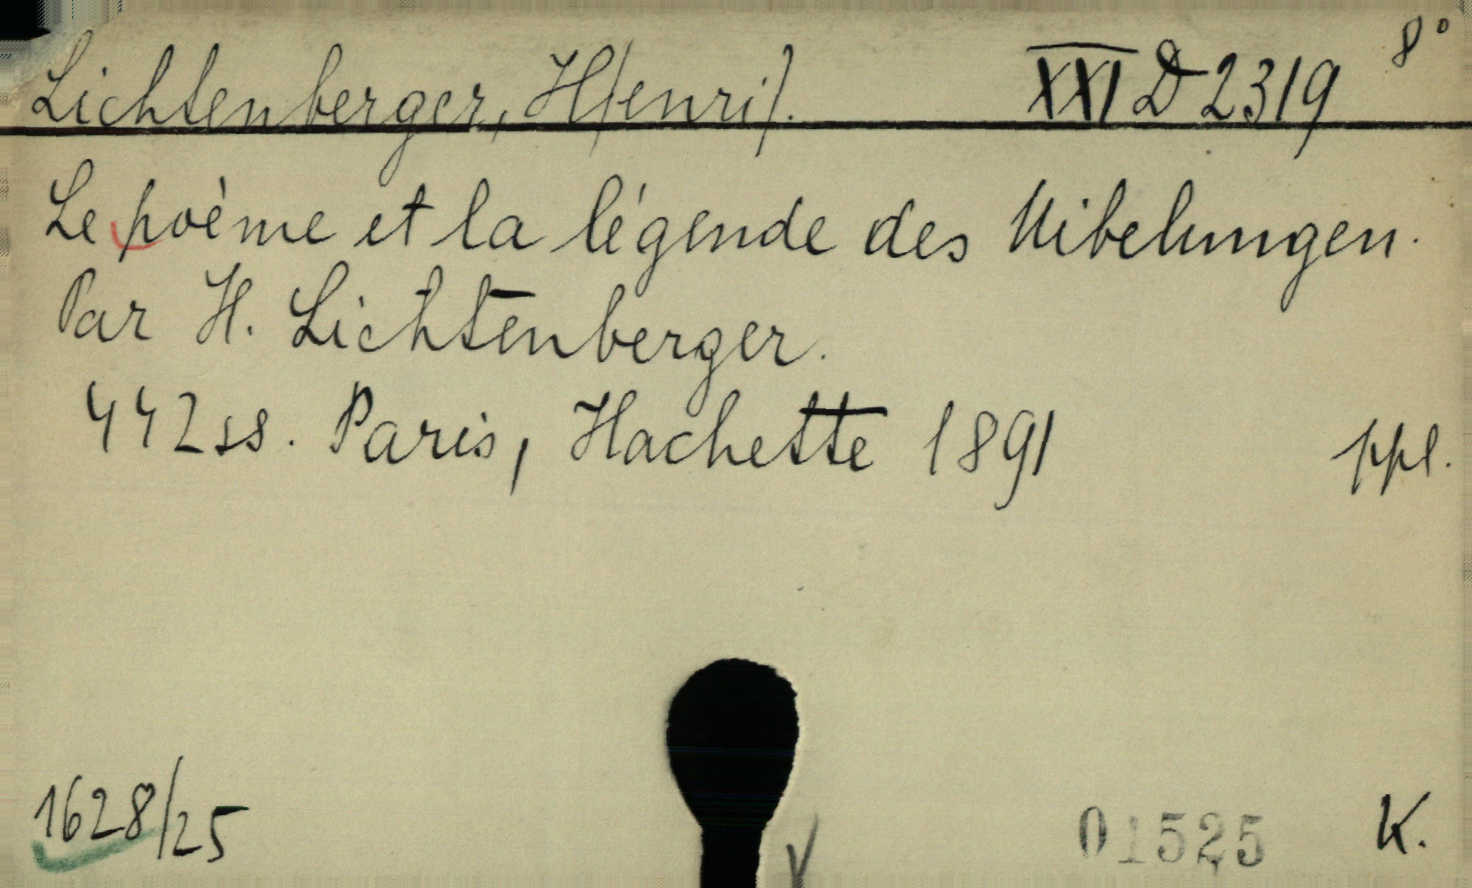 Lichtenberger, H[enri]. XXI D 2319 8°
Le poème et la légende des Nibelungen.
Par H. Lichtenberger.
442 ss. Paris, Hachette 1891 ppl.
1628/25 01525 K.